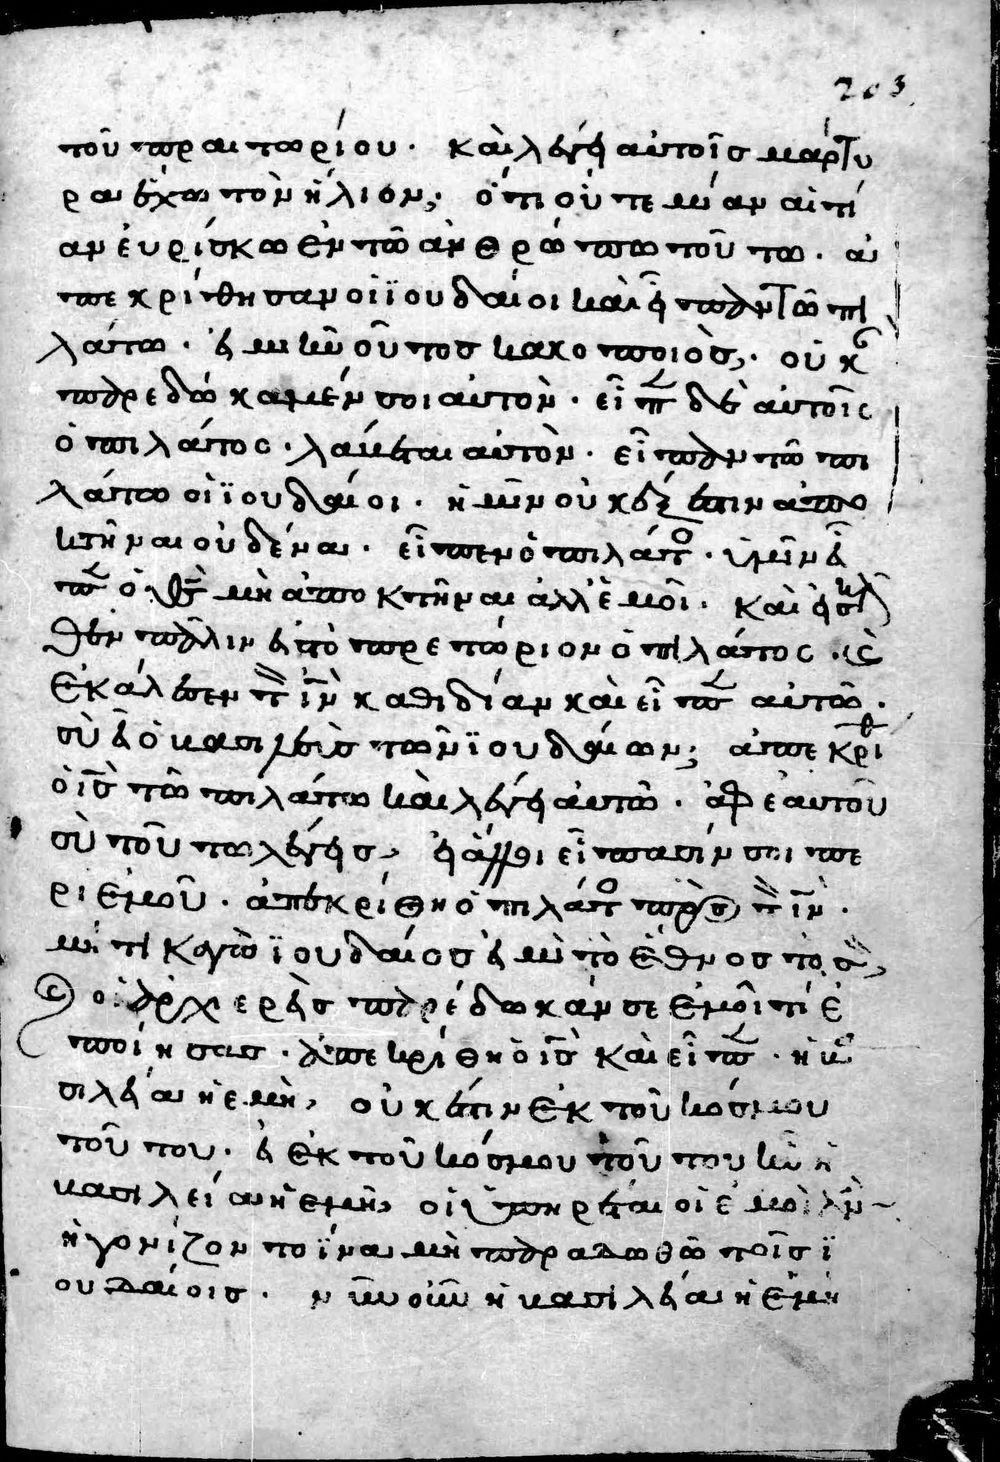 203
τοῦ πραιτωρίου. καὶ λέγει αὐτοῖσ μάρτυ
ρα ἔχω τὸν ἥλιον, ὅτι οὔτε μίαν αἰτί
αν ἑυρίσκω ἐν τῶ ἀνθρώπω τούτω. ἀ
πεκρίθησαν οἱ ϊουδαίοι καὶ εἶπον τῶ πι
λάτω. εἰ μὴ ἦν οὗτοσ κακοποιὸσ, οὐκ
παρεδώκαμέν σοι αὐτὸν. εἶπεν δὲ αὐτοῖς
ὁ πιλάτος. λάβεται αὐτὸν. εἶπον τῶ πι
λάτω οἱ ϊουδαίοι. ἡμῖν οὐκ ἔξεστιν ἀπο
κτῆναι οὐδένα. εἶπεν ὁ πιλάτο. ὑμῖν εἶ
πεν ὁ θσ μὴ ἀποκτῆναι ἀλλ' ἐμοὶ. καὶ εἰσῆλ
θεν πάλιν εἰσ τὸ πρετώριον ὁ πιλάτος. καὶ
ἐκάλεσεν τὸν ἰν καθιδίαν καὶ εἶπεν αὐτῶ.
σὺ εἶ ὁ βασιλεὺσ τῶν ϊουδαίων; ἀπεκρίθ
ὁ ἰσ τῶ πιλάτω καὶ λέγει αὐτῶ. ἀφ' ἑαυτοῦ
σὺ τοῦτο λέγεισ, εἰ ἄλλοι εἴπασίν σοι πε
ρι ἐμοῦ. ἀπεκρίθη ὁ πιλάτο πρὸσ τὸν ἰν.
μή τι καγὼ ϊουδαίοσ εἰμὶ τὸ ἔθνοσ τὸ σὸν,
οἱ ἀρχιερεῖσ παρέδωκάν σε ἐμοὶ τί ἐ
ποίησασ. ἀπεκρίθη ὁ ἰσ καὶ εἶπεν. ἡ βα
σιλεία ἡ ἐμὴ, οὐκ ἔστιν ἐκ τοῦ κόσμου
τούτου. εἰ ἐκ τοῦ κόσμου τούτου ἦν ἡ
βασιλεία ἡ ἐμὴ, οἱ ὑπηρέται οἱ ἐμοὶ ἂν
ἠγονίζοντο ϊνα μὴ παραδωθῶ τοῖσ ϊ
ουδαίοισ. νῦν οὖν ἡ βασιλεία ἡ ἐμὴ